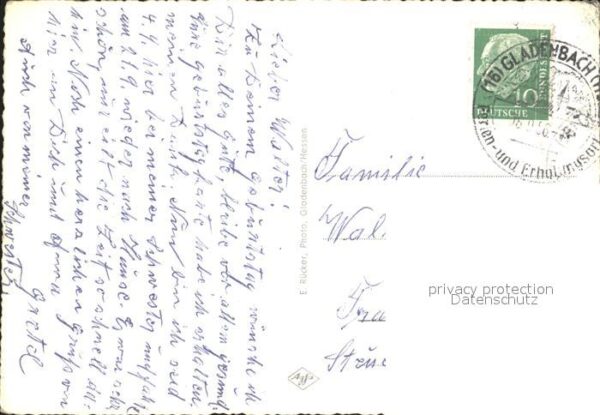 Lieber Walter!
Zu Deinem Geburtstag wünsche ich
Dir alles Gute, bleibe vor allem gesund
Deine Geburtstagskarte habe ich erhalten.
meinen Dank. Nun bin ich seit
4.9. hier bei meiner Schwester
am 21.9. wieder nach Hause. Es war sehr
schön, nur eilt die Zeit so schnell da-
hin. Noch einen herzlichen Gruß von
hier an Dich und
Auch von meiner Gretel
Schwester
E. Rücker, Photo, Gladenbach/Hessen
Agfa
Familie
Wal
Fra
Stre
10
DEUTSCHE
BUNDESPOST
(16) GLADENBACH
Ferien- und Erholungsort
privacy protection
Datenschutz